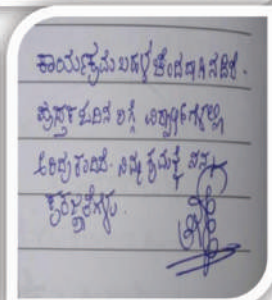 ಕಾರ್ಯಕ್ರಮ ಬಹಳ ಚೆಂದವಾಗಿ ನಡೆದಿದೆ.
ಪುಸ್ತಕ ಓದಿನ ಬಗ್ಗೆ ವಿದ್ಯಾರ್ಥಿಗಳಲ್ಲಿ
ನಿಮ್ಮ ಶ್ರಮಕ್ಕೆ ನನ್ನ
ಕೃತಜ್ಞತೆಗಳು.